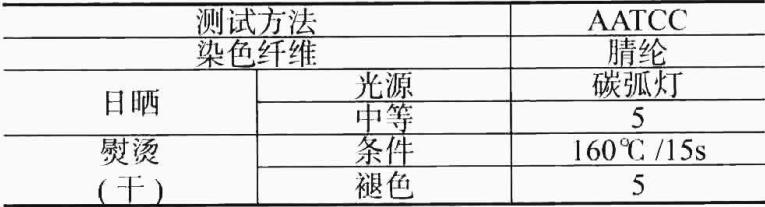 测试方法 AATCC
染色纤维 腈纶
日晒 光源 碳弧灯
中等 5
熨烫 条件 160℃/15s
(干) 褪色 5